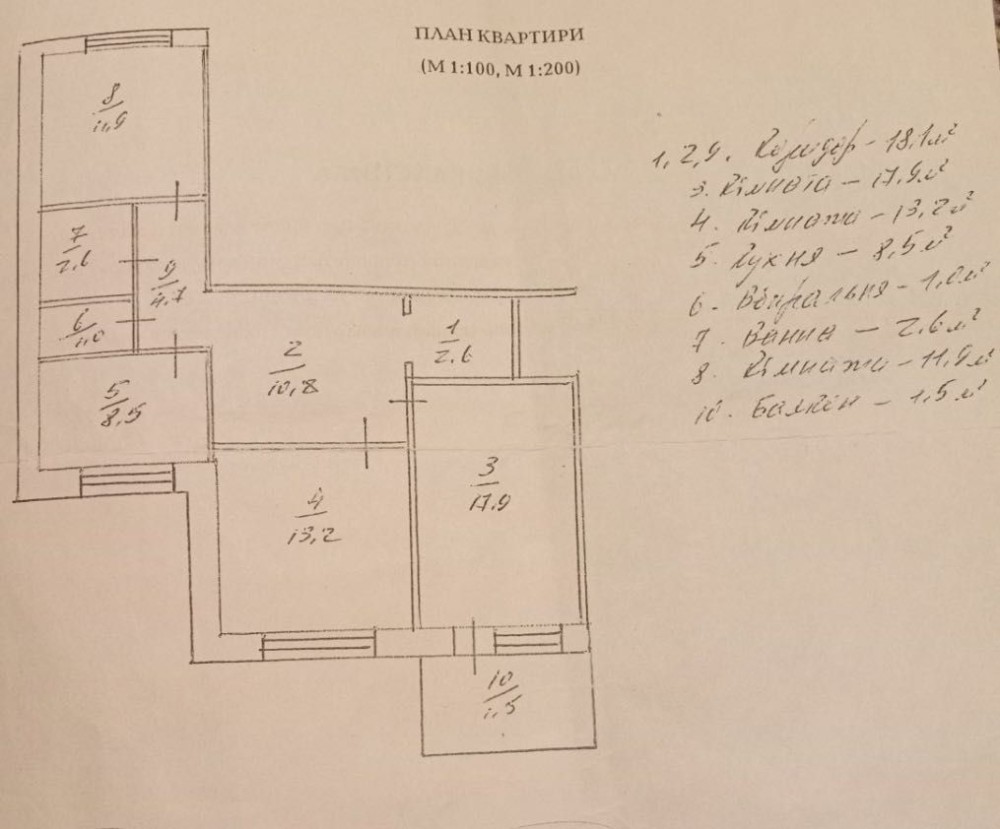 ПЛАН КВАРТИРИ
(М 1:100, М 1:200)
1,2,9. Коридор - 18,1м²
3. Кімната - 17,9м²
4. Кімната - 13,2м²
5. Кухня - 8,5м²
6. Вбиральня - 1,0м²
7 Ванна - 2,6м²
8. Кімната - 11,9м²
10. Балкон - 1,5м²
8
11,9
7
2,6
9
4,7
6
1,0
1
2,6
2
10,8
5
8,5
3
17,9
4
13,2
10
1,5